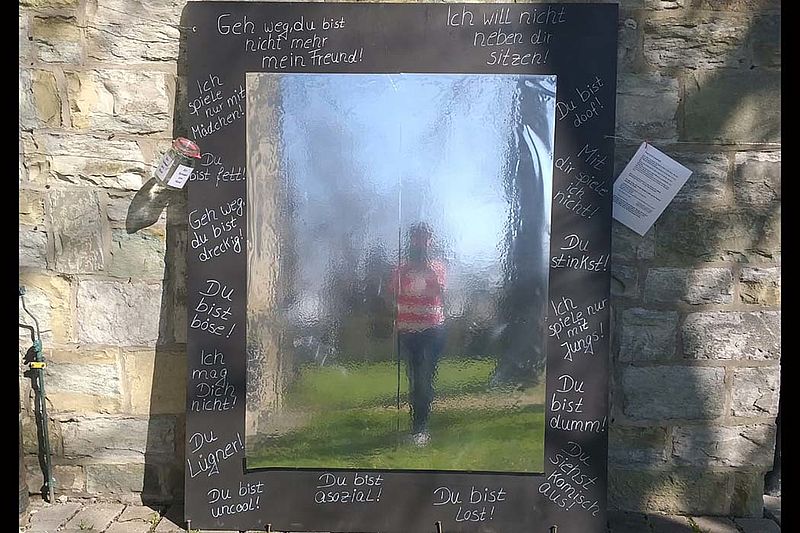 Geh weg, du bist
nicht mehr
mein Freund!
Ich will nicht
neben dir
sitzen!
Ich
spiele
nur mit
Mädchen!
Du
bist fett!
Geh weg,
du bist
dreckig!
Du
bist
böse!
Ich
mag
Dich
nicht!
Du
Lügner!
Du bist
uncool!
Du bist
asozial!
Du bist
Lost!
Du bist
doof!
Mit
dir spiele
ich
nicht!
Du
stinkst!
Ich
spiele nur
mit
Jungs!
Du
bist
dumm!
Du
siehst
Komisch
aus!